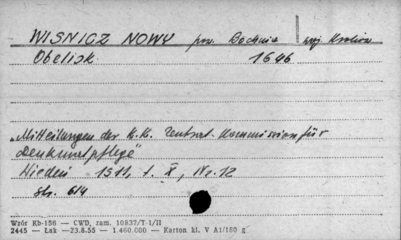 WISNICZ NOWY pow. Bochnia woj. Kraków
Obelisk 1646
„Mitteilungen der K.K. Zentral. Kommission für
Denkmalpflege"
Wiedeń 1911, t. X, Nr. 12
Str. 614
Wzór Kb-156 — CWD, zam. 10837/T-1/II
2445 — Łak — 23.8.55 — 1.460.000 — Karton kl. V A1/160 g